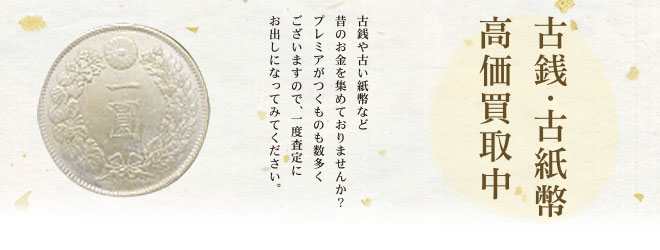 古銭・古紙幣
高価買取中
古銭や古い紙幣など
昔のお金を集めておりませんか？
プレミアがつくものも数多く
ございますので、一度査定に
お出しになってみてください。
一圓